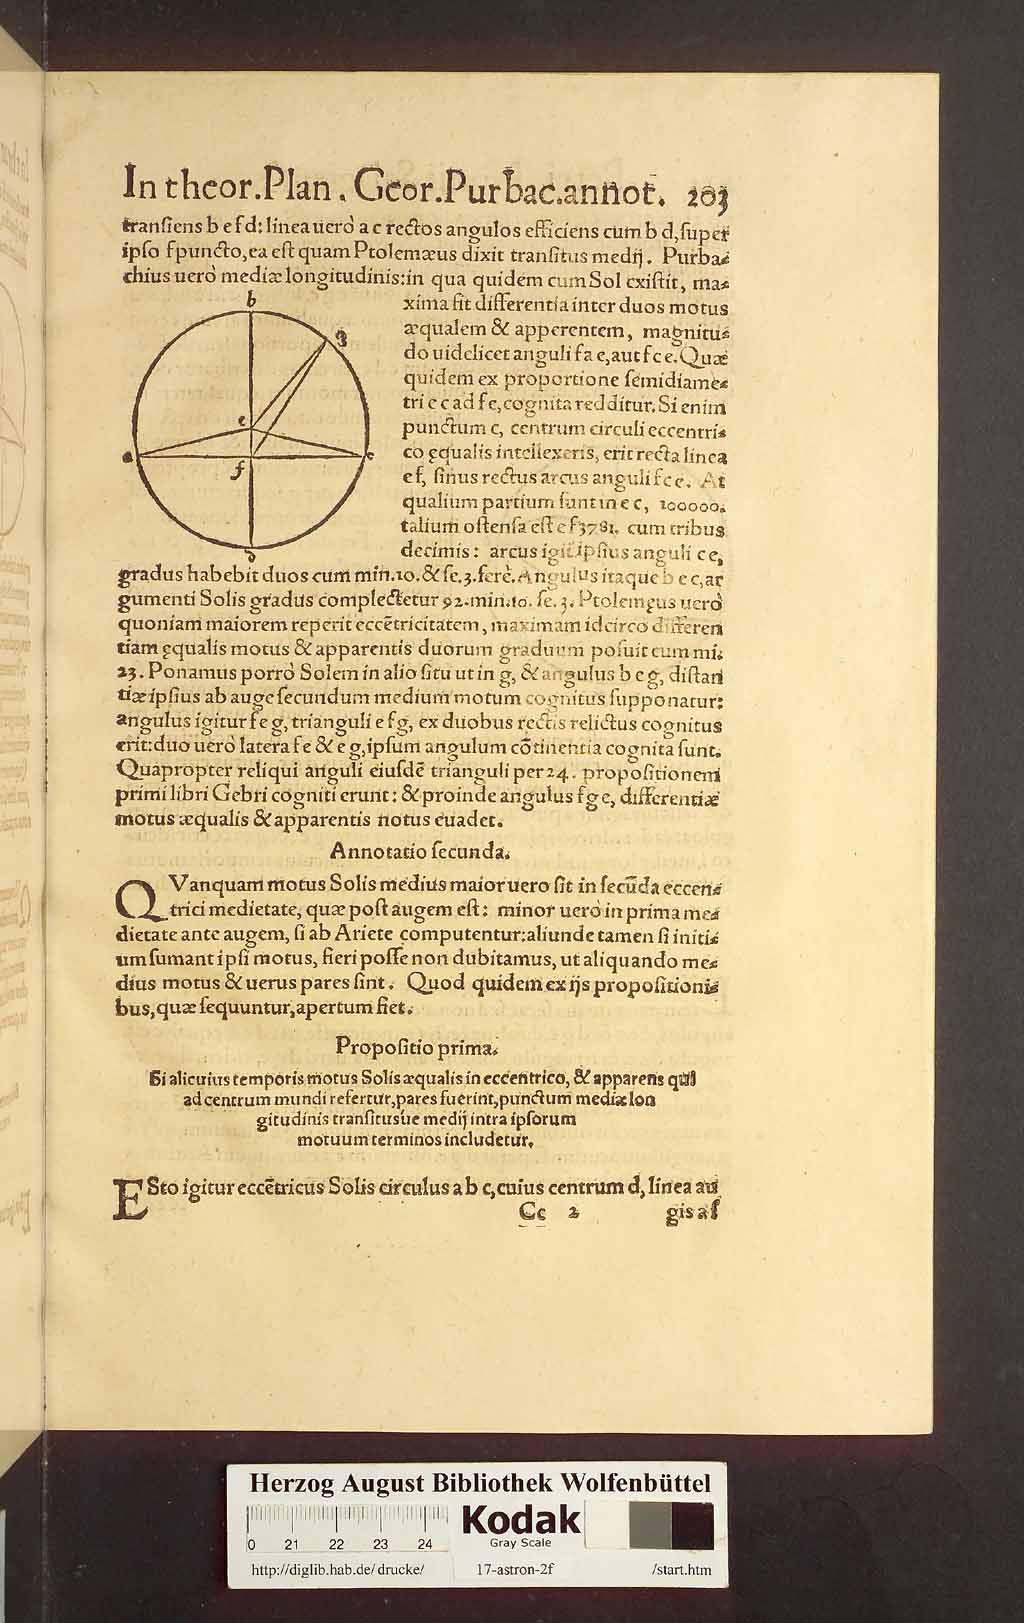 In theor.Plan. Geor.Purbac.annot. 203
transiens b e f d: linea uerò a c rectos angulos efficiens cum b d, super
ipso f puncto, ea est quam Ptolemæus dixit transitus medij. Purba-
chius uerò mediæ longitudinis: in qua quidem cum Sol existit, ma-
xima fit differentia inter duos motus
æqualem & apperentem, magnitu-
do uidelicet anguli f a e, aut f c e. Quæ
quidem ex proportione semidiame-
tri e c ad f e, cognita redditur. Si enim
punctum c, centrum circuli eccentri-
co ęqualis intellexeris, erit recta linea
e f, sinus rectus arcus anguli f c e. At
qualium partium sunt in e c, 100000.
talium ostensa est e f 3781. cum tribus
decimis: arcus igit ipsius anguli c e,
gradus habebit duos cum min. 10. & se. 3. ferè. Angulus itaque b e c, ar
gumenti Solis gradus complectetur 92. min. 10. se. 3. Ptolemęus uerò
quoniam maiorem reperit eccētricitatem, maximam idcirco differen
tiam ęqualis motus & apparentis duorum graduum posuit cum mi.
23. Ponamus porrò Solem in alio situ ut in g, & angulus b e g, distan
tiæ ipsius ab auge secundum medium motum cognitus supponatur:
angulus igitur f e g, trianguli e f g, ex duobus rectis relictus cognitus
erit: duo uerò latera f e & e g, ipsum angulum cōtinentia cognita sunt.
Quapropter reliqui anguli eiusdē trianguli per 24. propositionem
primi libri Gebri cogniti erunt: & proinde angulus f g e, differentiæ
motus æqualis & apparentis notus euadet.
b
g
e
a
c
f
d
Annotatio secunda.
QVanquam motus Solis medius maior uero sit in secūda eccen-
trici medietate, quæ post augem est: minor uerò in prima me-
dietate ante augem, si ab Ariete computentur: aliunde tamen si initi-
um sumant ipsi motus, fieri posse non dubitamus, ut aliquando me-
dius motus & uerus pares sint. Quod quidem ex ijs propositioni-
bus, quæ sequuntur, apertum fiet.
Propositio prima.
Si alicuius temporis motus Solis æqualis in eccentrico, & apparens qui
ad centrum mundi refertur, pares fuerint, punctum mediæ lon
gitudinis transitusue medij intra ipsorum
motuum terminos includetur.
ESto igitur eccētricus Solis circulus a b c, cuius centrum d, linea au
Cc 2 gis a f
Herzog August Bibliothek Wolfenbüttel
0 21 22 23 24
Kodak
Gray Scale
http://diglib.hab.de/drucke/ 17-astron-2f /start.htm